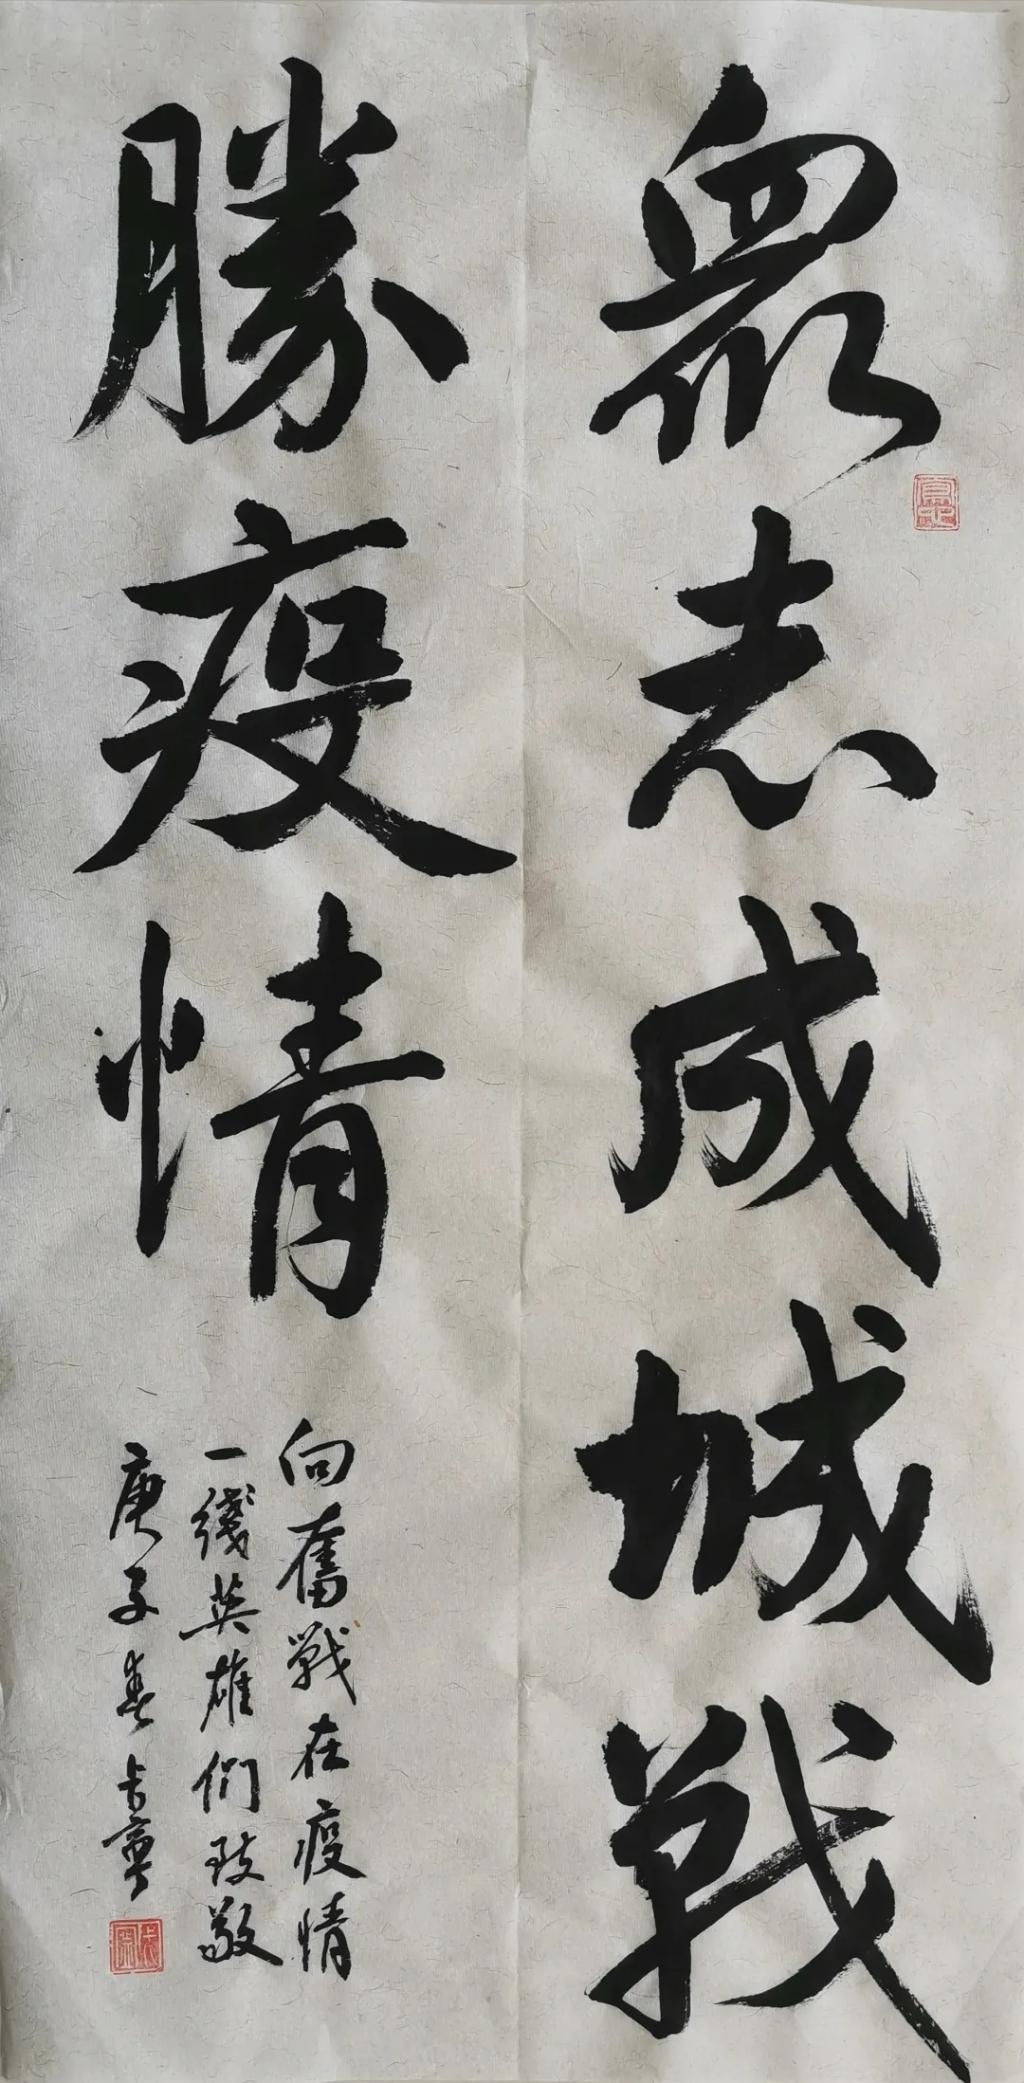 眾志成城戰
勝疫情
向奮戰在疫情
一綫英雄們致敬
庚子春